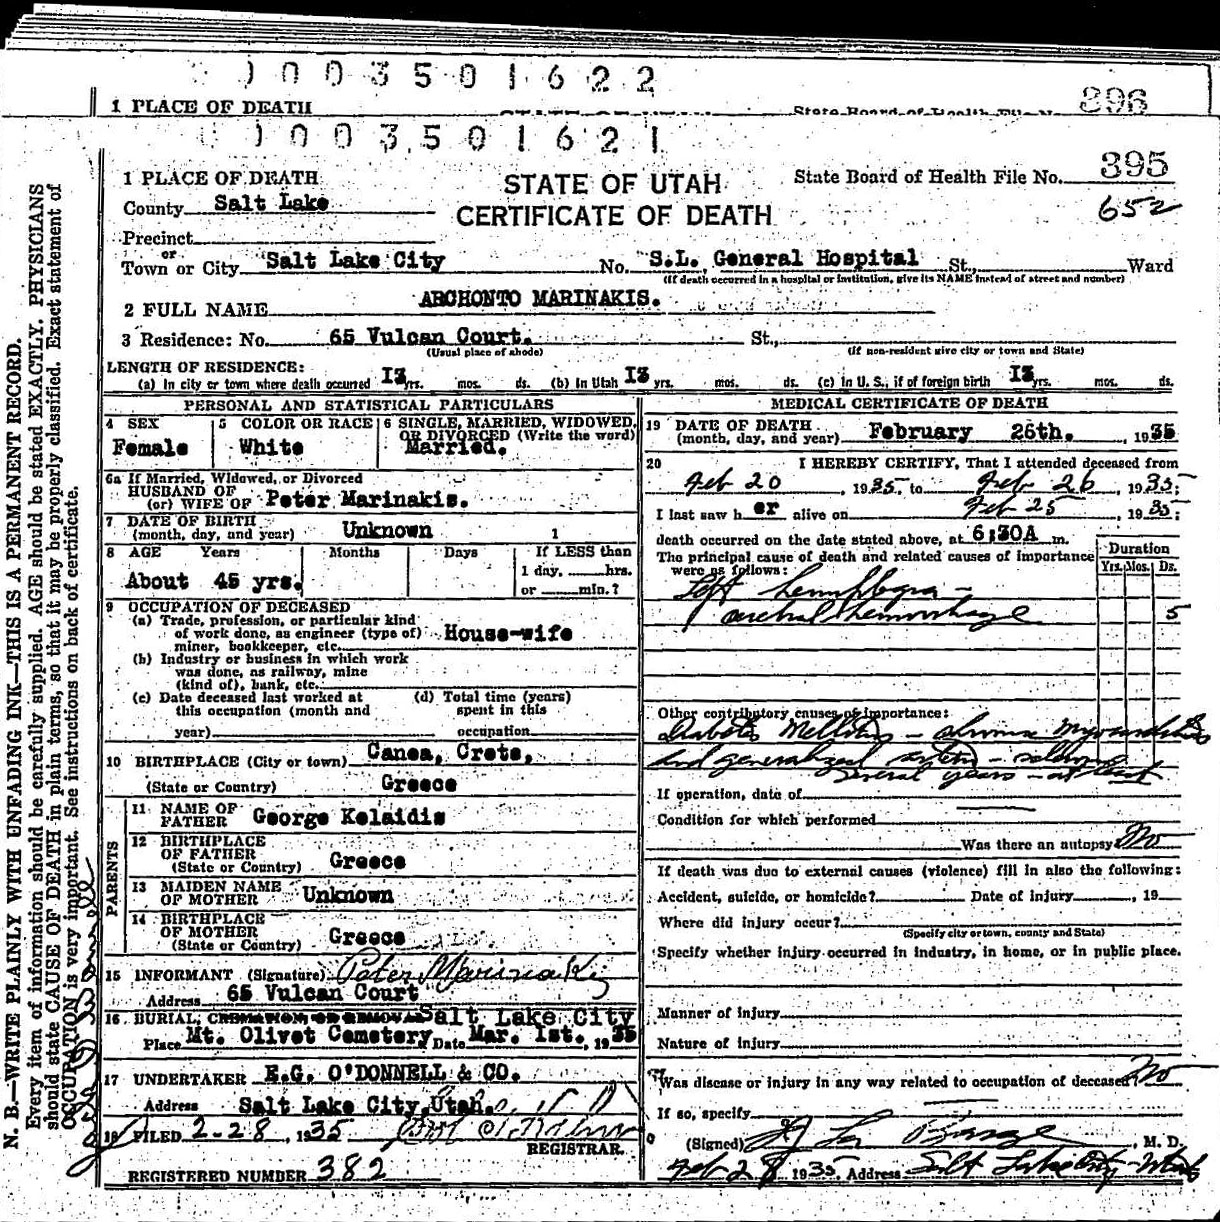 1003501622
1 PLACE OF DEATH
State Board of Health File No. 396
1003501621
395
1 PLACE OF DEATH
STATE OF UTAH
State Board of Health File No.
County Salt Lake
CERTIFICATE OF DEATH
652
Precinct
or
Town or City Salt Lake City No. S.L. General Hospital St., Ward
(If death occurred in a hospital or institution, give its NAME instead of street and number)
2 FULL NAME ARCHONTO MARINAKIS.
3 Residence: No. 65 Vulcan Court. St.,
(Usual place of abode) (If non-resident give city or town and State)
LENGTH OF RESIDENCE:
(a) In city or town where death occurred I3 yrs. mos. ds. (b) In Utah I3 yrs. mos. ds. (c) In U. S., if of foreign birth I3 yrs. mos. ds.
PERSONAL AND STATISTICAL PARTICULARS
4 SEX
Female
5 COLOR OR RACE
White
6 SINGLE, MARRIED, WIDOWED,
OR DIVORCED (Write the word)
Married.
6a If Married, Widowed, or Divorced
HUSBAND OF
(or) WIFE OF Peter Marinakis.
7 DATE OF BIRTH
(month, day, and year) Unknown 1
8 AGE Years Months Days If LESS than
1 day, hrs.
About 45 yrs. or min.?
9 OCCUPATION OF DECEASED
(a) Trade, profession, or particular kind
of work done, as engineer (type of) House-wife
miner, bookkeeper, etc.
(b) Industry or business in which work
was done, as railway, mine
(kind of), bank, etc.
(c) Date deceased last worked at
this occupation (month and
year)
(d) Total time (years)
spent in this
occupation
10 BIRTHPLACE (City or town) Canea, Crete,
(State or Country) Greece
PARENTS
11 NAME OF
FATHER George Kelaidis
12 BIRTHPLACE
OF FATHER
(State or Country) Greece
13 MAIDEN NAME
OF MOTHER Unknown
14 BIRTHPLACE
OF MOTHER
(State or Country) Greece
15 INFORMANT (Signature) Peter Marinakis
Address 65 Vulcan Court
16 BURIAL, CREMATION OR REMOVAL Salt Lake City
Place Mt. Olivet Cemetery Date Mar. 1st. , 1935
17 UNDERTAKER E.G. O'DONNELL & CO.
Address Salt Lake City, Utah.
18 FILED 2-28, 1935
REGISTRAR.
REGISTERED NUMBER 382
MEDICAL CERTIFICATE OF DEATH
19 DATE OF DEATH
(month, day, and year) February 26th. 1935
20 I HEREBY CERTIFY, That I attended deceased from
Feb 20 , 1935, to Feb 26 , 1935;
I last saw h er alive on Feb 25 , 1935;
death occurred on the date stated above, at 6:30A m.
The principal cause of death and related causes of importance
were as follows:
Duration
Yrs. Mos. Ds.
Left hemiplegia -
cerebral hemorrhage 5
Other contributory causes of importance:
Diabetes Mellitus - chronic myocarditis
and generalized arterio-sclerosis
several years - at least
If operation, date of
Condition for which performed
Was there an autopsy No
If death was due to external causes (violence) fill in also the following:
Accident, suicide, or homicide? Date of injury , 19
Where did injury occur?
(Specify city or town, county and State)
Specify whether injury occurred in industry, in home, or in public place.
Manner of injury
Nature of injury
Was disease or injury in any way related to occupation of deceased? No
If so, specify
(Signed) , M. D.
Feb 28 1935 Address Salt Lake City - Utah
N. B.—WRITE PLAINLY WITH UNFADING INK—THIS IS A PERMANENT RECORD.
Every item of information should be carefully supplied. AGE should be stated EXACTLY. PHYSICIANS
should state CAUSE OF DEATH in plain terms, so that it may be properly classified. Exact statement of
OCCUPATION is very important. See instructions on back of certificate.